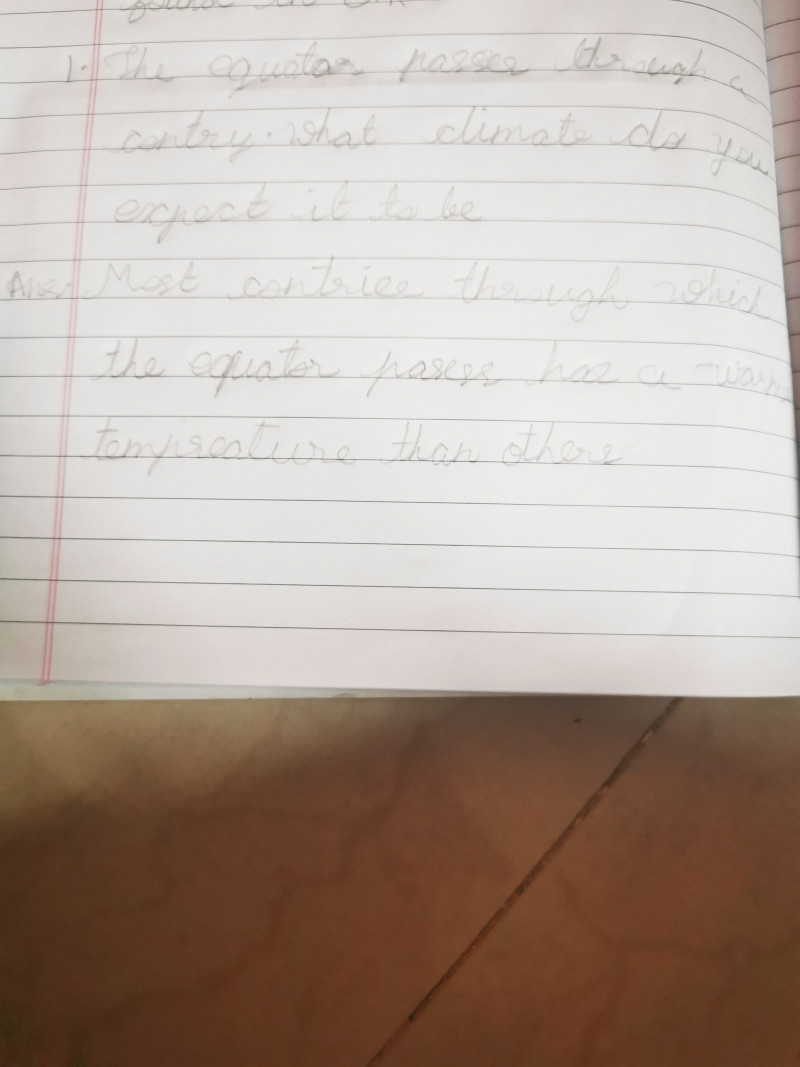 1. The equator passes through a
contry. what climate do you
expect it to be
Ans. Most contries through which
the equator passes has a warm
tempreature than others